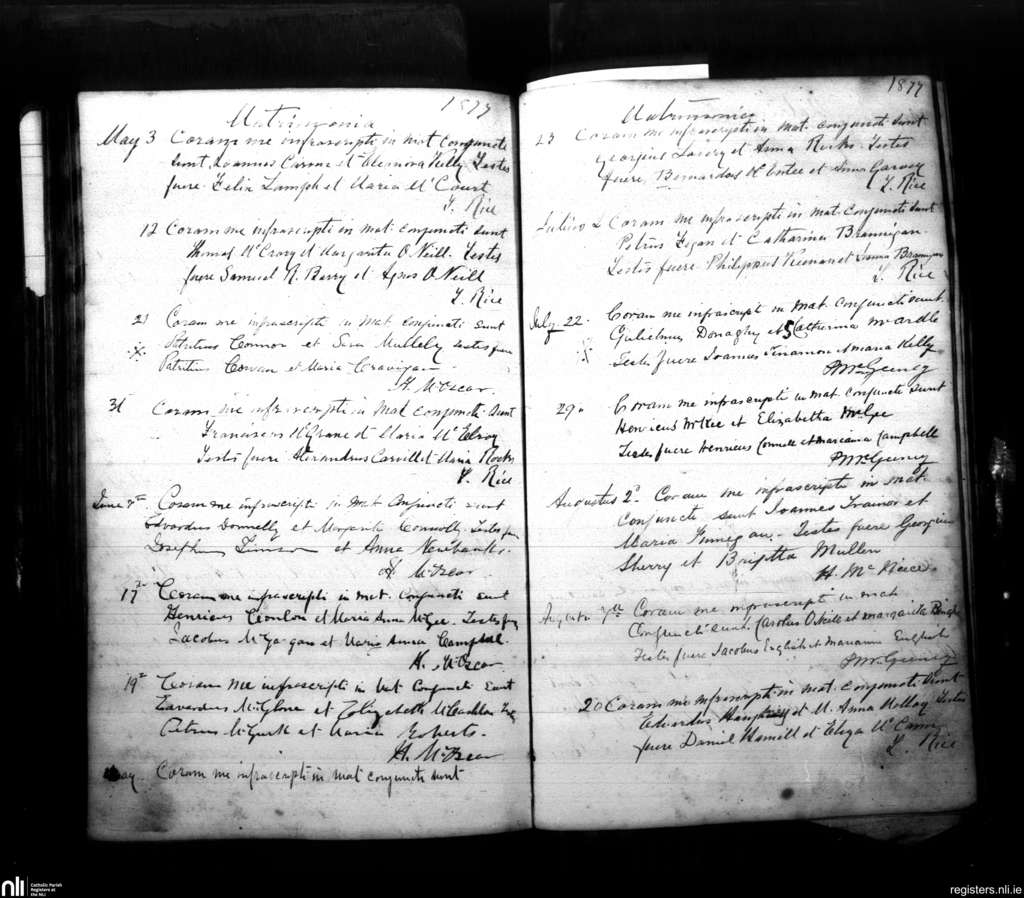 1877
Matrimonia
May 3 Coram me infrascripti in mat conjuncti
sunt Joannes Carne et Elenora Kelly Testes
fuere Felix Lamph et Maria McCourt
T. Rice
12 Coram me infrascripti in mat. conjuncti sunt
Thomas McCrory et Margarita O Neill. Testes
fuere Samuel R. Berry et Agnes O Neill
T. Rice
21 Coram me infrascripti in mat conjuncti sunt
Connor et Mullely testes fuere
Patritius Cowan et Maria
H. McOscar
31 Coram me infrascripti in mat conjuncti sunt
Franciscus McGrane et Maria McElroy
Testes fuere Alexandrus Carvill et Maria Rocks
T. Rice
June Coram me infrascripti in Mat Conjuncti sunt
Edvardus Donnelly et Connolly Testes
Joseph et Anna Newbanks.
H. McOscar
17 Coram me infrascripti in mat. Conjuncti sunt
Henricus Conlon et Maria Anna McGee. Testes
Jacobus et Maria Anna Campbell.
H. McOscar
19 Coram me infrascripti in Mat Conjuncti Sunt
McGlone et Elizabeth
Petrus McGurk et Maria Roberts.
H. McOscar
May Coram me infrascripti in mat conjuncti sunt
1877
Matrimonia
23 Coram me infrascripti in mat. conjuncti sunt
Georgius Lavery et Anna Rocks. Testes
fuere Bernardus McEntee et Anna Garvey
T. Rice
2 Coram me infrascripti in mat. conjuncti sunt
Petrus Fegan et Catharina Brannigan.
Testes fuere Philippus Keenan et Brannigan
T. Rice
July 22. Coram me infrascripti in mat. conjuncti sunt.
Gulielmus Donaghy et Catherina McArdle
Testes fuere Joannes Kinamon et Maria Kelly
PMcGeeney
29. Coram me infrascripti in mat. conjuncti sunt
Henricus McKee et Elizabetha McGee
Testes fuere Henricus Connell et Mariana Campbell
PMcGeeney
Augustus 2 Coram me infrascripti in mat.
conjuncti sunt Joannes Trainor et
Maria Finnegan. Testes fuere Georgius
Sherry et Brigitta Mullen
H. McNeice
7 Coram me infrascripti in mat
Conjuncti sunt Carolus O Neill et Margarita
Testes fuere Jacobus English et Marianna English
PMcGeeney
20 Coram me infrascripti in mat. conjuncti sunt
Edvardus et M. Anna Molloy Testes
fuere Daniel Hamill et Eliza McCann
T. Rice
nli
Catholic Parish
Registers at
the NLI
registers.nli.ie